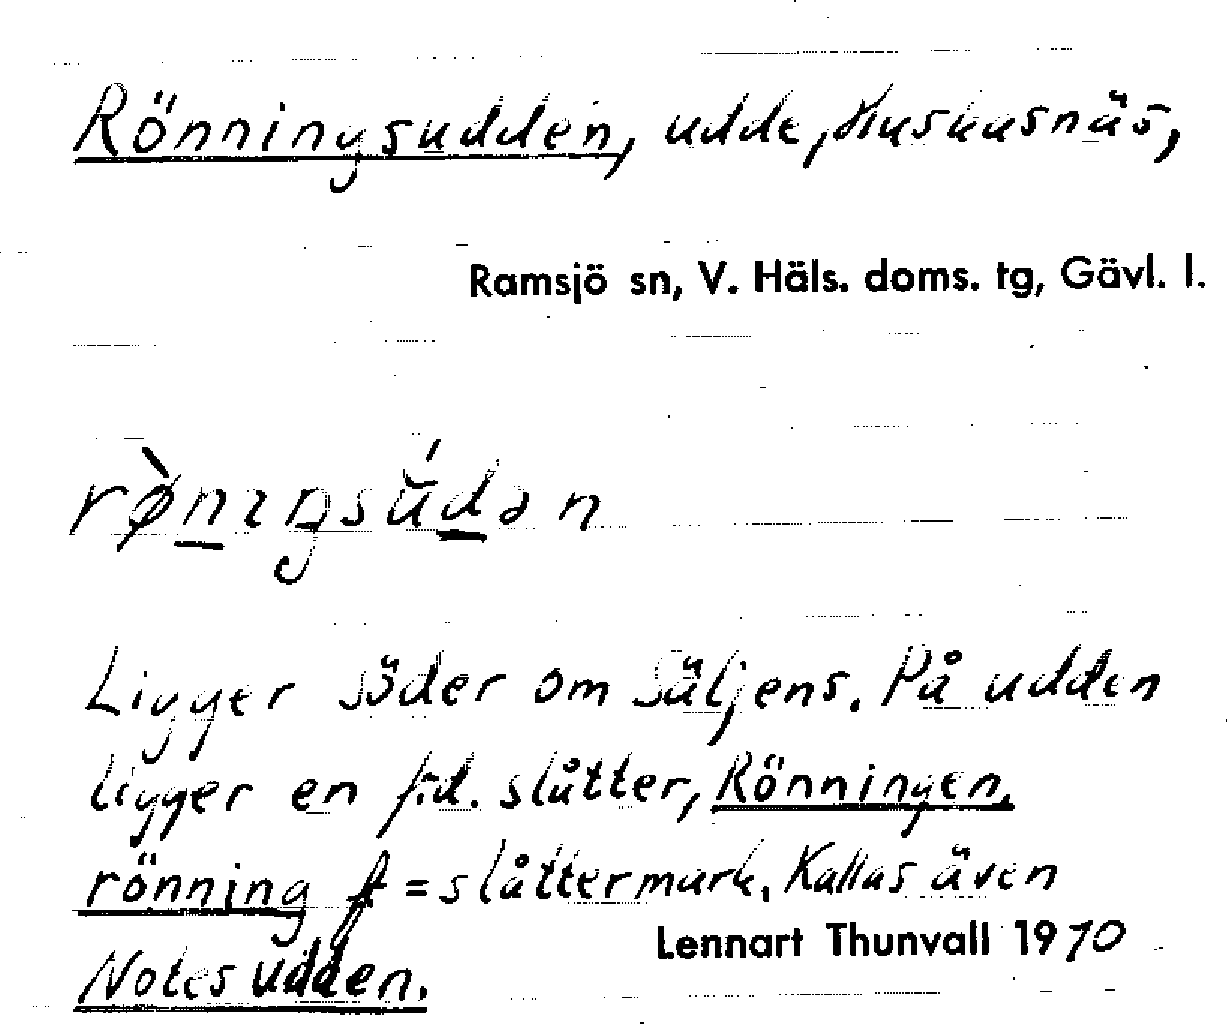 Rönningsudden, udde, Huskasnäs,
Ramsjö sn, V. Häls. doms. tg, Gävl. l.
rø̀nıŋsúdən
Ligger söder om Säljens. På udden
ligger en f.d. slåtter, Rönningen.
rönning f = slåttermark. Kallas även
Notesudden.
Lennart Thunvall 1970